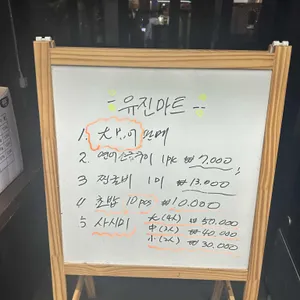 - 유진마트 -
1. 大 판매
2. 연어 1pk ₩7,000
3 1미 ₩13,000
4 초밥 10 pcs ₩10,000
5 사시미 大(4人) ₩50,000
中(3人) ₩40,000
小(2人) ₩30,000